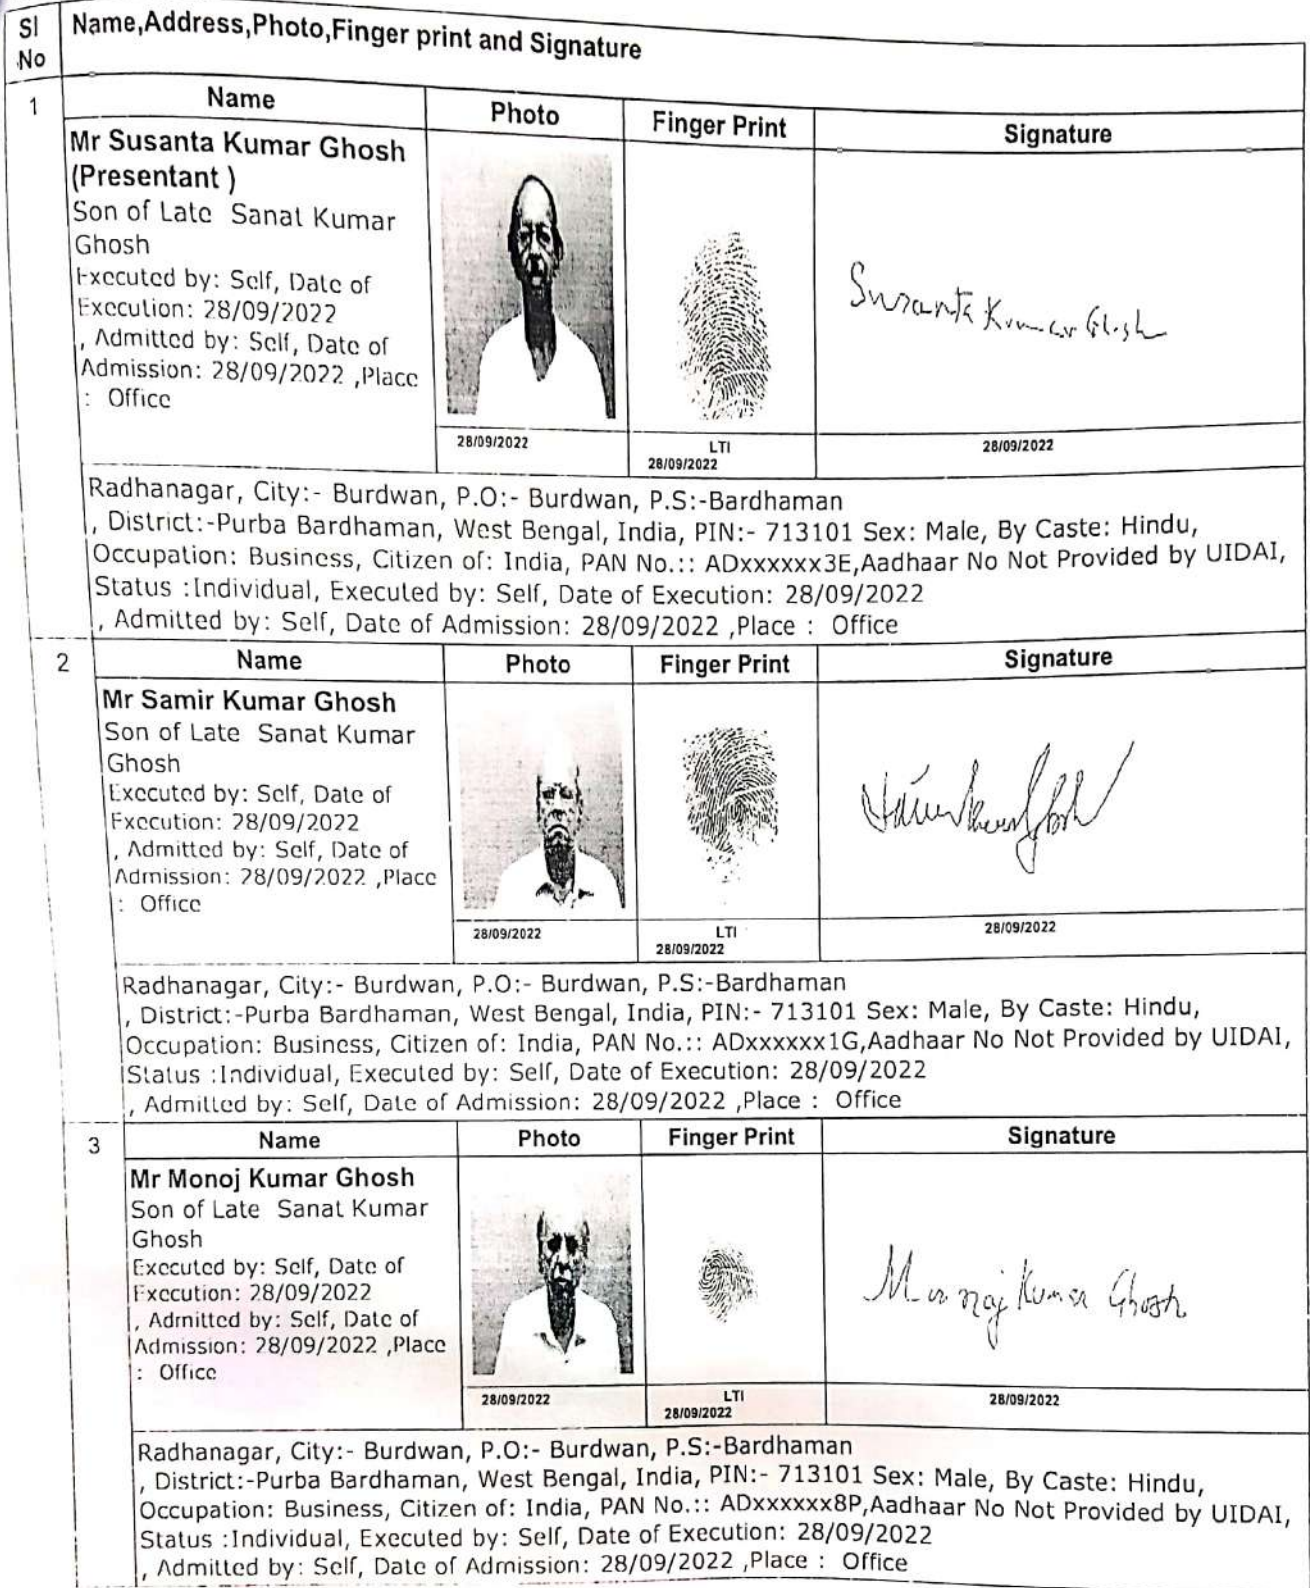 Sl No
Name,Address,Photo,Finger print and Signature
1
Name
Photo
Finger Print
Signature
Mr Susanta Kumar Ghosh
(Presentant )
Son of Late Sanat Kumar
Ghosh
Executed by: Self, Date of
Execution: 28/09/2022
, Admitted by: Self, Date of
Admission: 28/09/2022 ,Place
: Office
Susanta Kumar Ghosh
28/09/2022
LTI
28/09/2022
28/09/2022
Radhanagar, City:- Burdwan, P.O:- Burdwan, P.S:-Bardhaman
, District:-Purba Bardhaman, West Bengal, India, PIN:- 713101 Sex: Male, By Caste: Hindu,
Occupation: Business, Citizen of: India, PAN No.:: ADxxxxxx3E,Aadhaar No Not Provided by UIDAI,
Status :Individual, Executed by: Self, Date of Execution: 28/09/2022
, Admitted by: Self, Date of Admission: 28/09/2022 ,Place : Office
2
Name
Photo
Finger Print
Signature
Mr Samir Kumar Ghosh
Son of Late Sanat Kumar
Ghosh
Executed by: Self, Date of
Execution: 28/09/2022
, Admitted by: Self, Date of
Admission: 28/09/2022 ,Place
: Office
28/09/2022
LTI
28/09/2022
28/09/2022
Radhanagar, City:- Burdwan, P.O:- Burdwan, P.S:-Bardhaman
, District:-Purba Bardhaman, West Bengal, India, PIN:- 713101 Sex: Male, By Caste: Hindu,
Occupation: Business, Citizen of: India, PAN No.:: ADxxxxxx1G,Aadhaar No Not Provided by UIDAI,
Status :Individual, Executed by: Self, Date of Execution: 28/09/2022
, Admitted by: Self, Date of Admission: 28/09/2022 ,Place : Office
3
Name
Photo
Finger Print
Signature
Mr Monoj Kumar Ghosh
Son of Late Sanat Kumar
Ghosh
Executed by: Self, Date of
Execution: 28/09/2022
, Admitted by: Self, Date of
Admission: 28/09/2022 ,Place
: Office
Monoj Kumar Ghosh
28/09/2022
LTI
28/09/2022
28/09/2022
Radhanagar, City:- Burdwan, P.O:- Burdwan, P.S:-Bardhaman
, District:-Purba Bardhaman, West Bengal, India, PIN:- 713101 Sex: Male, By Caste: Hindu,
Occupation: Business, Citizen of: India, PAN No.:: ADxxxxxx8P,Aadhaar No Not Provided by UIDAI,
Status :Individual, Executed by: Self, Date of Execution: 28/09/2022
, Admitted by: Self, Date of Admission: 28/09/2022 ,Place : Office